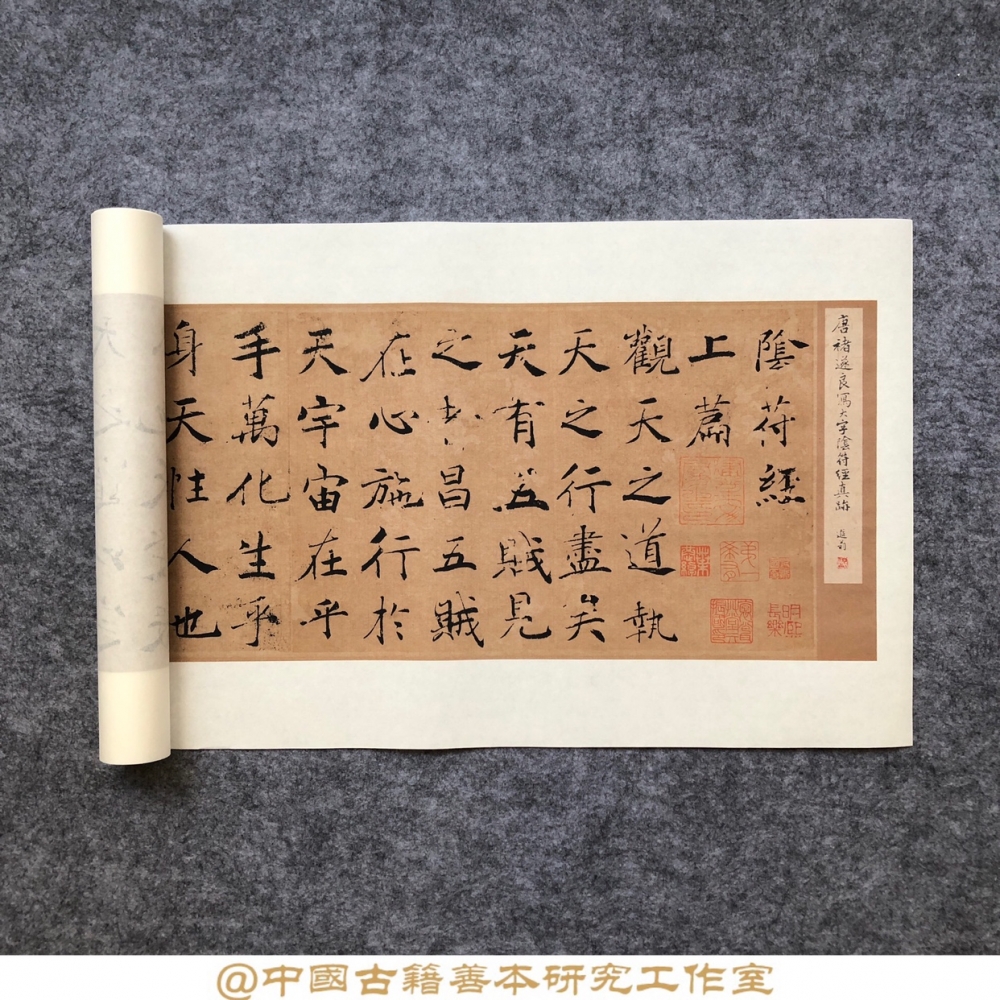 唐褚遂良寫大字陰符經真跡 遐翁
陰苻經
上篇
觀天之道執
天之行盡矣
天有五賊見
之者昌五賊
在心施行於
天宇宙在乎
手萬化生乎
身天性人也
@中國古籍善本研究工作室